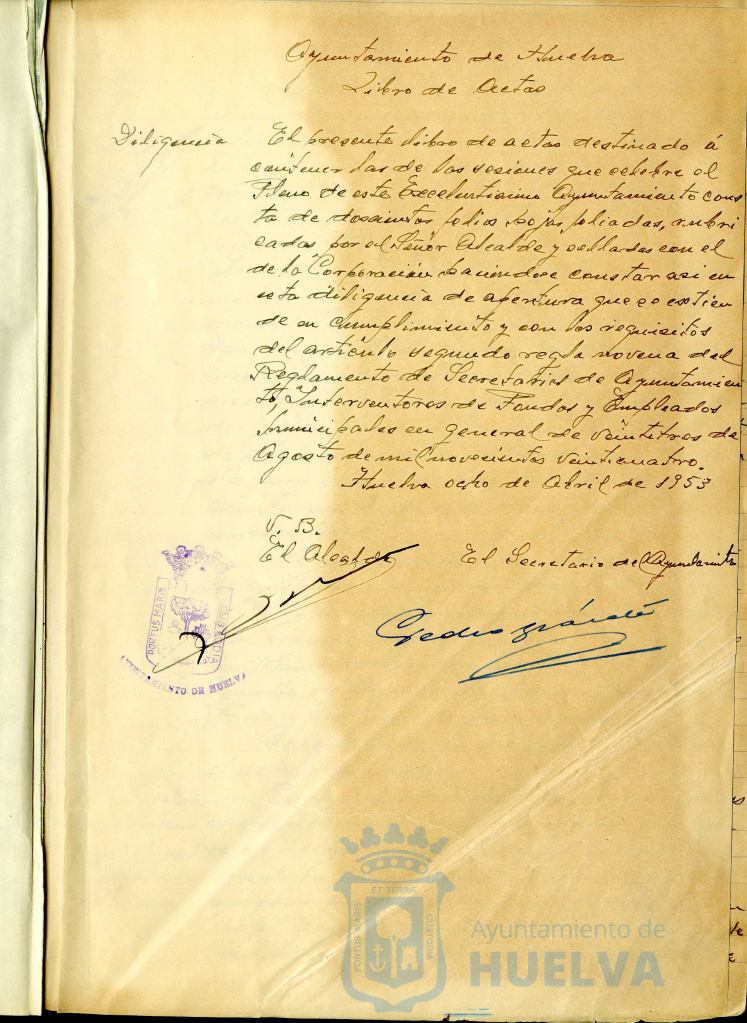 Ayuntamiento de Huelva
Libro de Actas
Diligencia
El presente libro de actas destinado á
contener las de las sesiones que celebre el
Pleno de este Excelentisimo Ayuntamiento cons
ta de doscientos folios hojas, foliadas, rubri
cadas por el Señor Alcalde y selladas con el
de la Corporación haciendose constar asi en
esta diligencia de apertura que se extien
de en cumplimiento y con los requisitos
del articulo segundo regla novena del
Reglamento de Secretarios de Ayuntamien
to, Interventores de Fondos y Empleados
municipales en general de veintitres de
Agosto de mil novecientos veinticuatro.
Huelva ocho de Abril de 1953
V. B.
El Alcalde
El Secretario del Ayuntamiento
Pedro
PORTUS MARIS
CUSTODIA
AYUNTAMIENTO DE HUELVA
ET TERRÆ
PORTUS MARIS
CUSTODIA
Ayuntamiento de
HUELVA